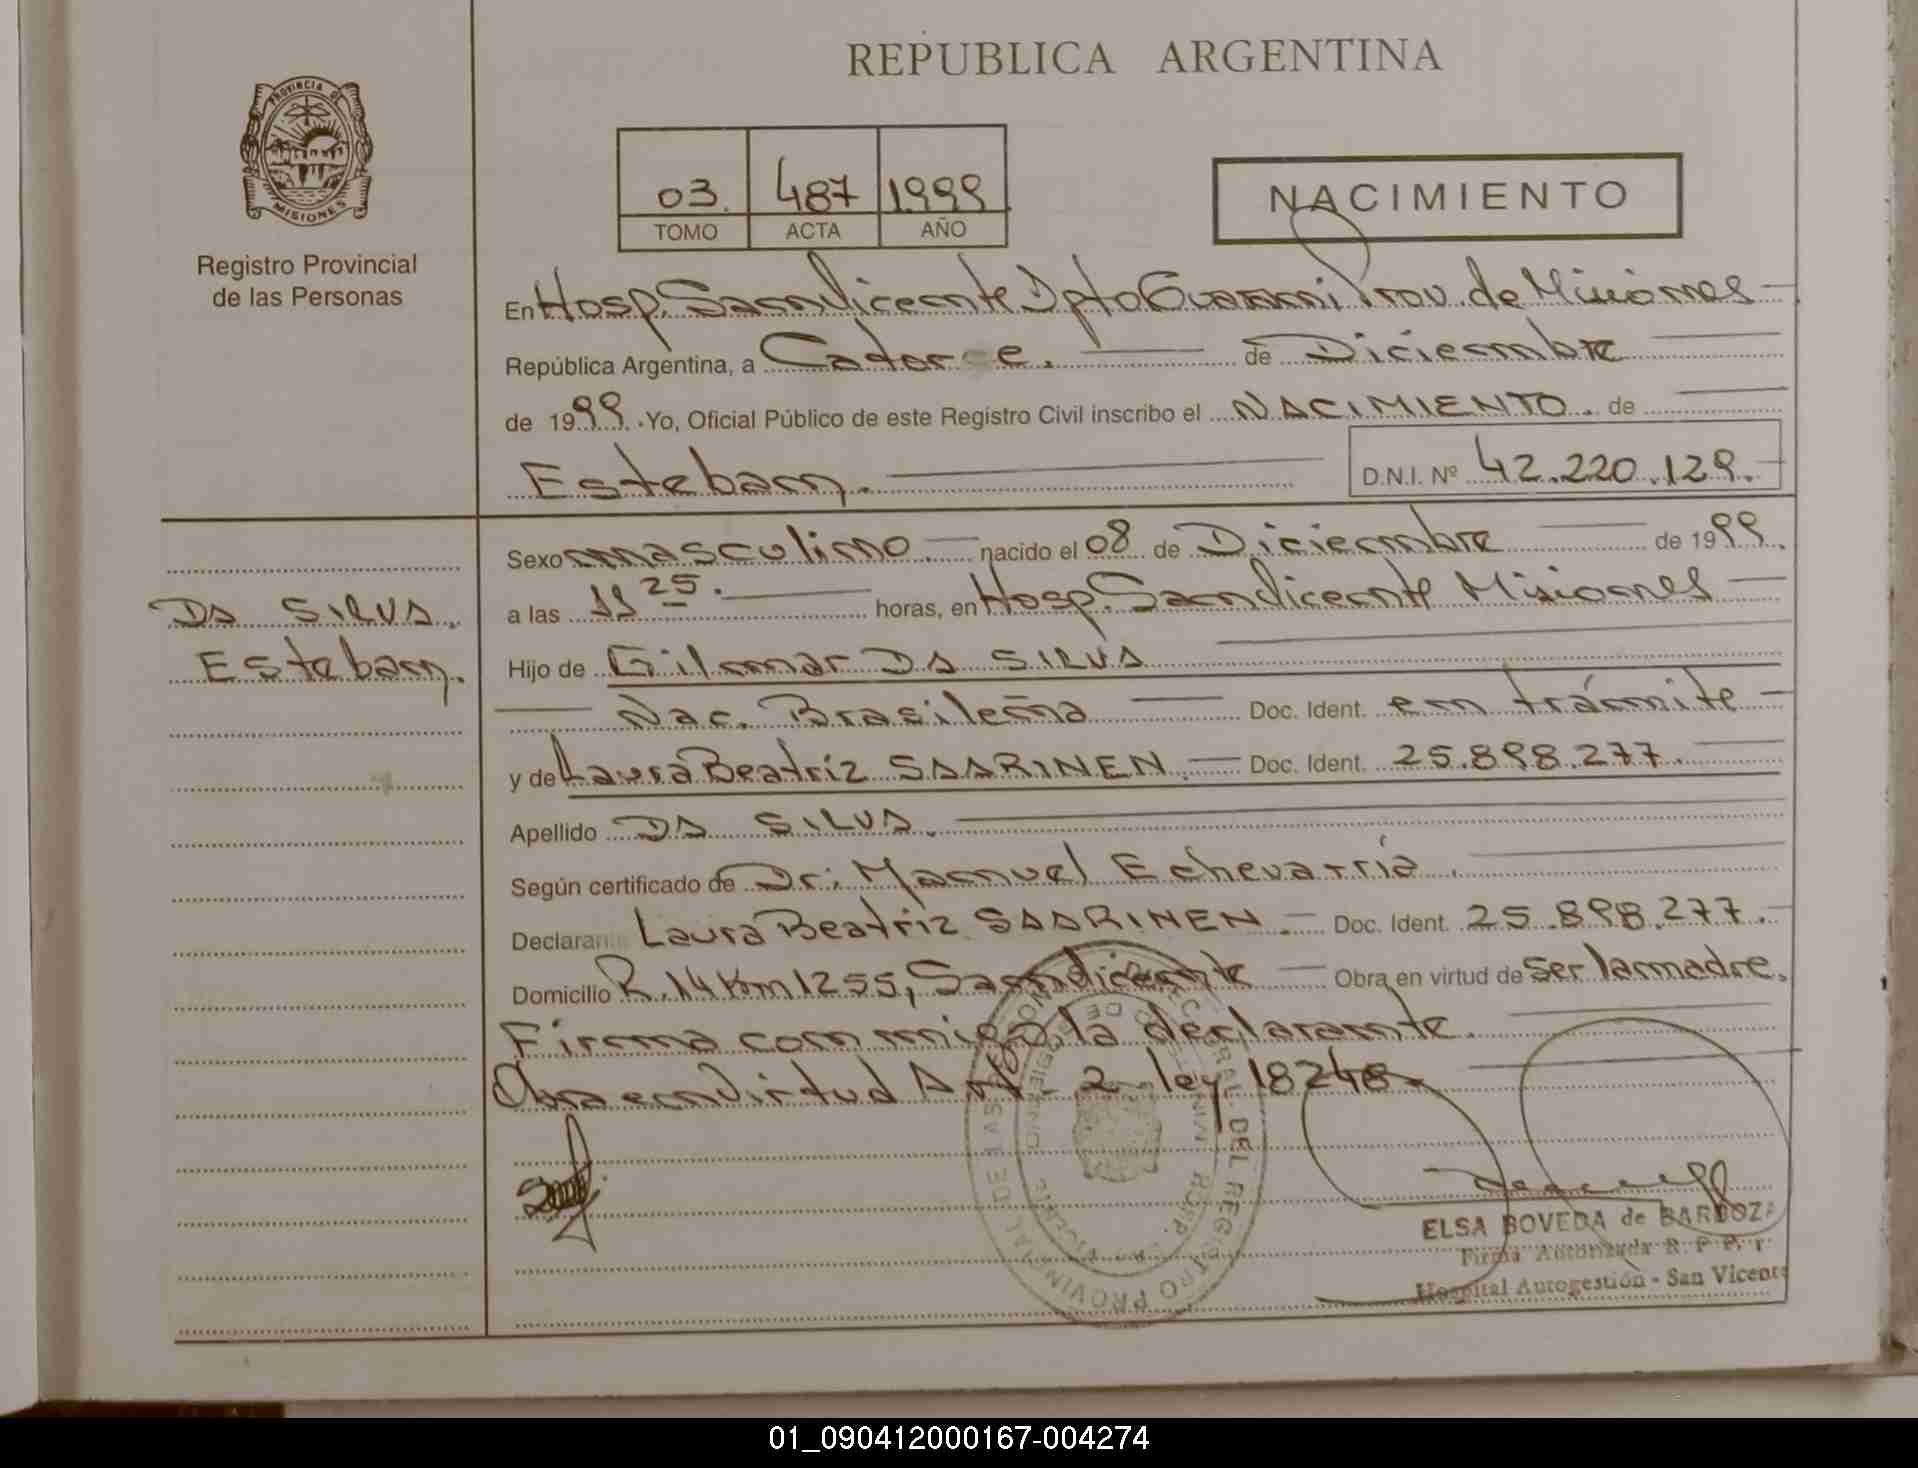 REPUBLICA ARGENTINA
PROVINCIA DE
MISIONES
Registro Provincial
de las Personas
03. 487 1999
TOMO ACTA AÑO
NACIMIENTO
En Hosp. San Vicente Dpto Guaraní Prov. de Misiones
República Argentina, a Catorce. de Diciembre
de 1999. Yo, Oficial Público de este Registro Civil inscribo el NACIMIENTO. de
Esteban. D.N.I. Nº 42.220.129.
DA SILVA.
Esteban.
Sexo masculino. nacido el 08 de Diciembre de 1999.
a las 11 25. horas, en Hosp. San Vicente Misiones
Hijo de Gilmar DA SILVA
Nac. Brasileña Doc. Ident. en trámite
y de Laura Beatriz SAARINEN. Doc. Ident. 25.898.277.
Apellido DA SILVA.
Según certificado de Dr: Manuel Echevarría.
Declarante Laura Beatriz SAARINEN. Doc. Ident. 25.898.277.
Domicilio R. 14 Km 1255, San Vicente Obra en virtud de Ser la madre.
Firma conmigo la declarante.
Obra en virtud Art. 2 ley 18248
ELSA BOVEDA de BARBOZA
Firma Autorizada R. P. P.
Hospital Autogestión - San Vicente
01_090412000167-004274